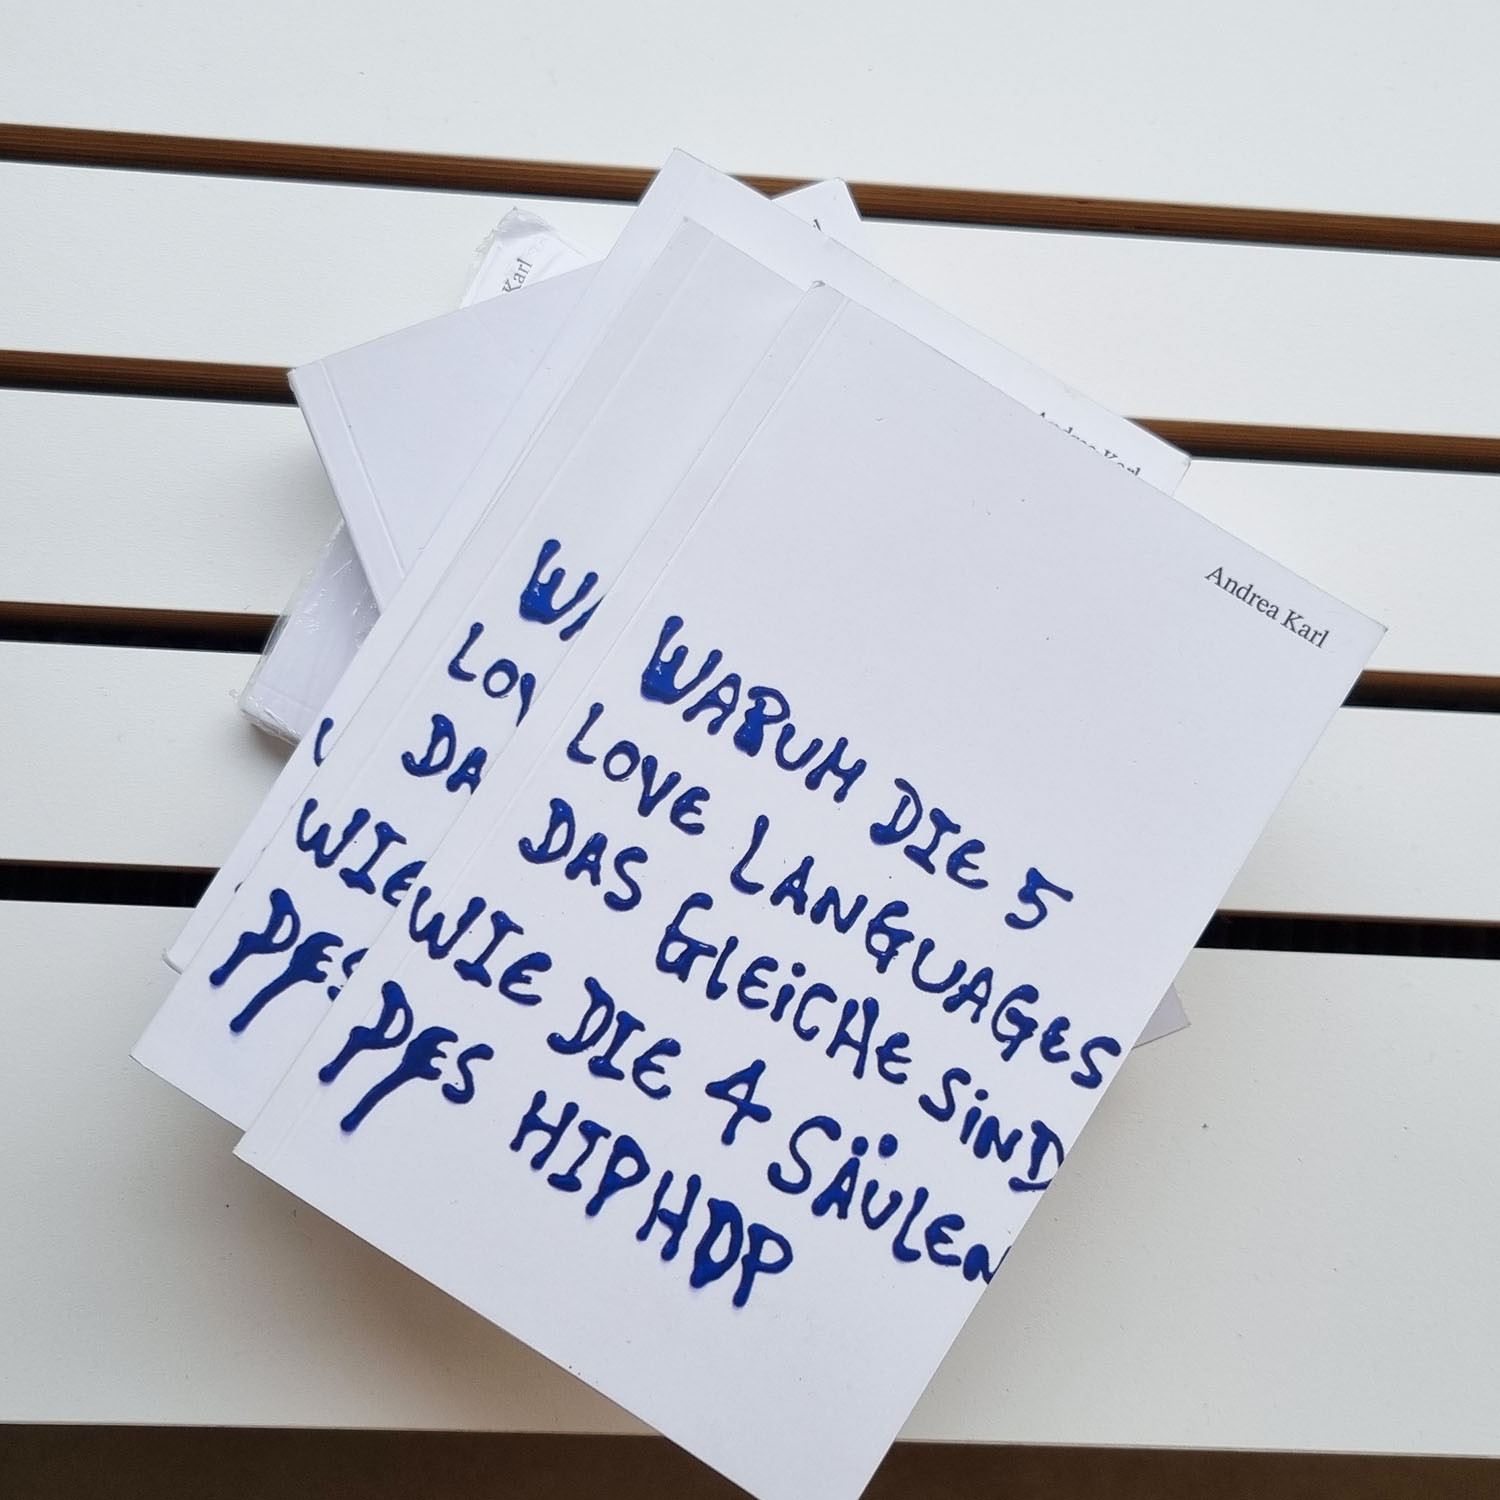 Karl
Andrea Karl
Andrea Karl
WARUM DIE 5
LOVE LANGUAGES
DAS GLEiCHE SiND
WIE DIE 4 SÄULEN
DES HIPHOP
WA
LOV
DA
WIE
DES